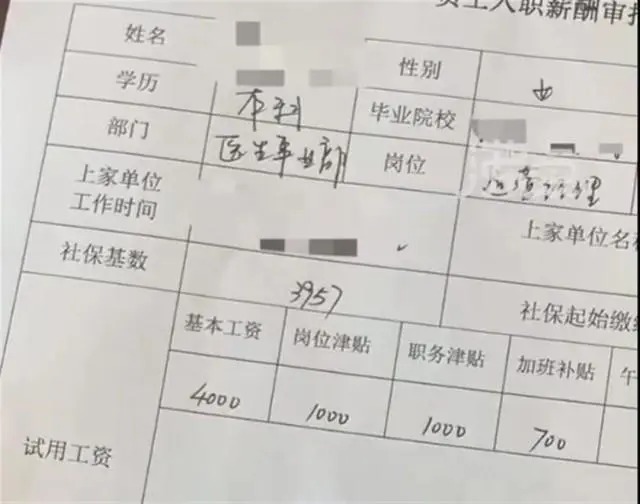 员工入职薪酬审批
姓名 性别 女
学历 本科 毕业院校
部门 医生事业部 岗位 运营经理
上家单位
工作时间 上家单位名称
社保基数 3957 社保起始缴
基本工资 岗位津贴 职务津贴 加班补贴 午
4000 1000 1000 700
试用工资